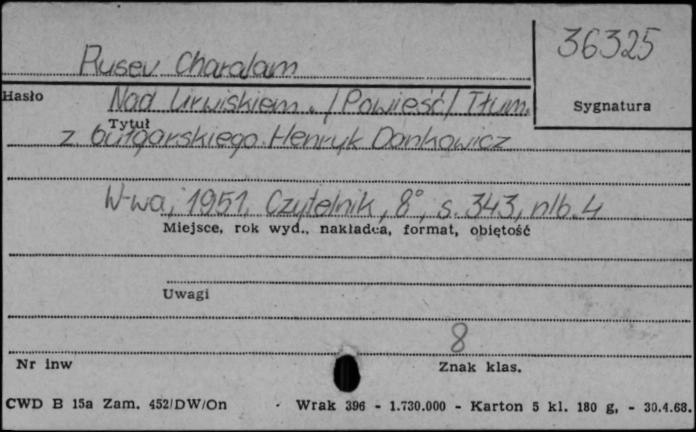 36325
Rusev Charalam
Hasło
Nad Urwiskiem. /Powieść/ Tłum.
Sygnatura
Tytuł
z bułgarskiego Henryk Dankowicz
W-wa, 1951, Czytelnik, 8°, s. 343, nlb. 4
Miejsce, rok wyd., nakładca, format, objętość
Uwagi
8
Nr inw
Znak klas.
CWD B 15a Zam. 452/DW/On · Wrak 396 - 1.730.000 - Karton 5 kl. 180 g, - 30.4.68.